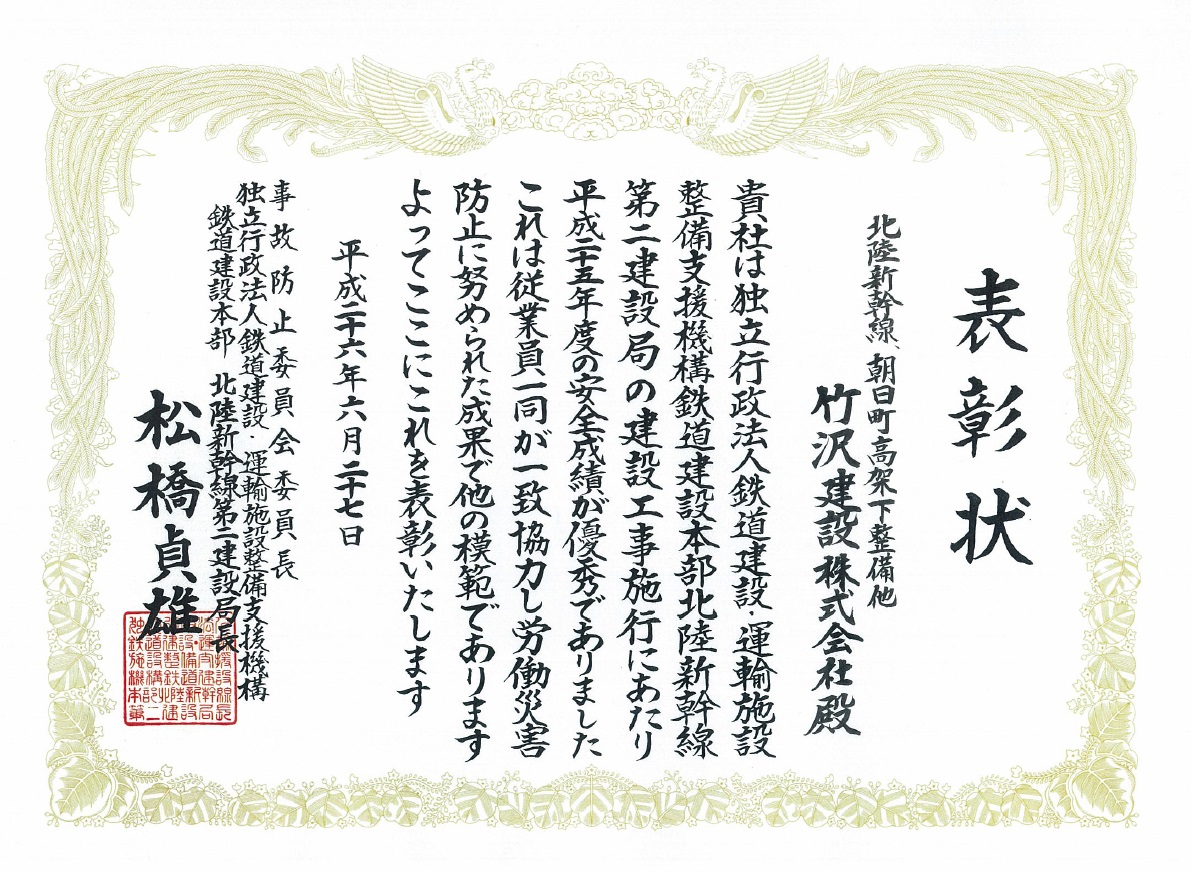 表彰状
北陸新幹線、朝日町高架下整備他
竹沢建設株式会社殿
貴社は独立行政法人鉄道建設・運輸施設
整備支援機構鉄道建設本部北陸新幹線
第二建設局の建設工事施行にあたり
平成二十五年度の安全成績が優秀でありました
これは従業員一同が一致協力し労働災害
防止に努められた成果で他の模範であります
よってここにこれを表彰いたします
平成二十六年六月二十七日
事故防止委員会委員長
独立行政法人鉄道建設・運輸施設整備支援機構
鉄道建設本部 北陸新幹線第二建設局長
松橋貞雄